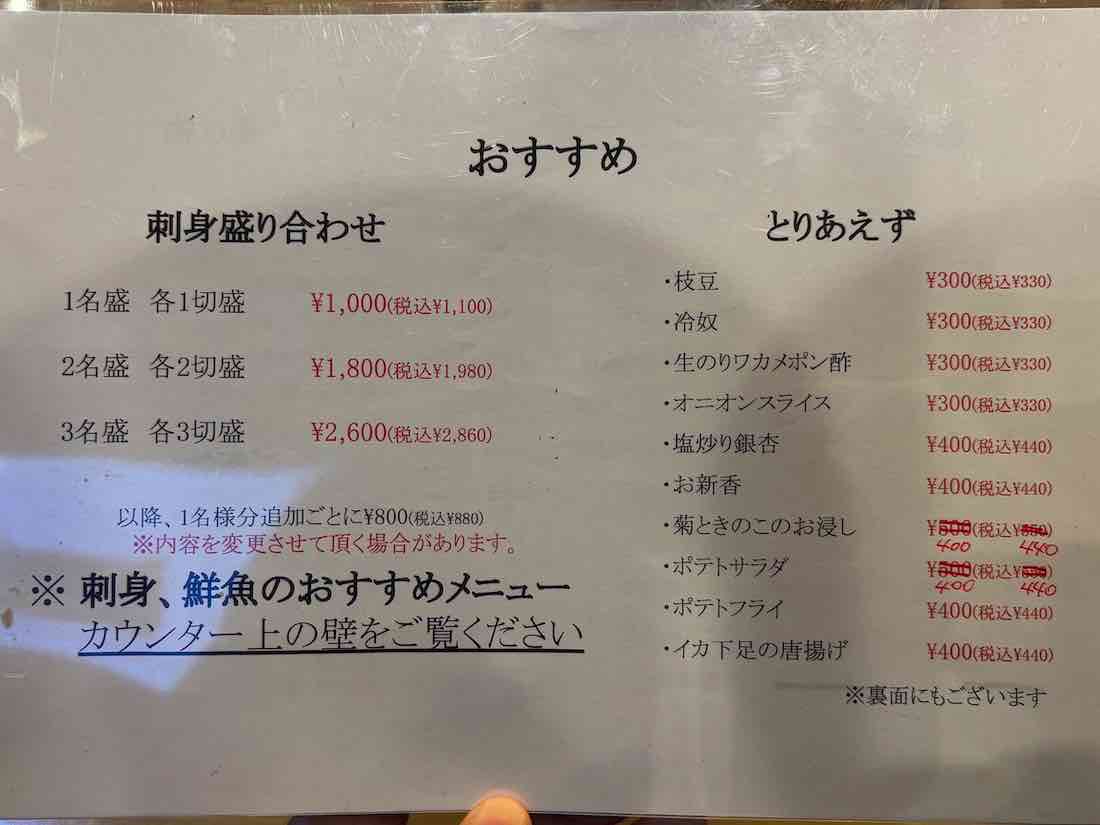 おすすめ
刺身盛り合わせ
1名盛 各1切盛 ¥1,000(税込¥1,100)
2名盛 各2切盛 ¥1,800(税込¥1,980)
3名盛 各3切盛 ¥2,600(税込¥2,860)
以降、1名様分追加ごとに¥800(税込¥880)
※内容を変更させて頂く場合があります。
※ 刺身、鮮魚のおすすめメニュー
カウンター上の壁をご覧ください
とりあえず
・枝豆 ¥300(税込¥330)
・冷奴 ¥300(税込¥330)
・生のりワカメポン酢 ¥300(税込¥330)
・オニオンスライス ¥300(税込¥330)
・塩炒り銀杏 ¥400(税込¥440)
・お新香 ¥400(税込¥440)
・菊ときのこのお浸し ¥(税込¥)
400 440
・ポテトサラダ ¥(税込¥)
400 440
・ポテトフライ ¥400(税込¥440)
・イカ下足の唐揚げ ¥400(税込¥440)
※裏面にもございます